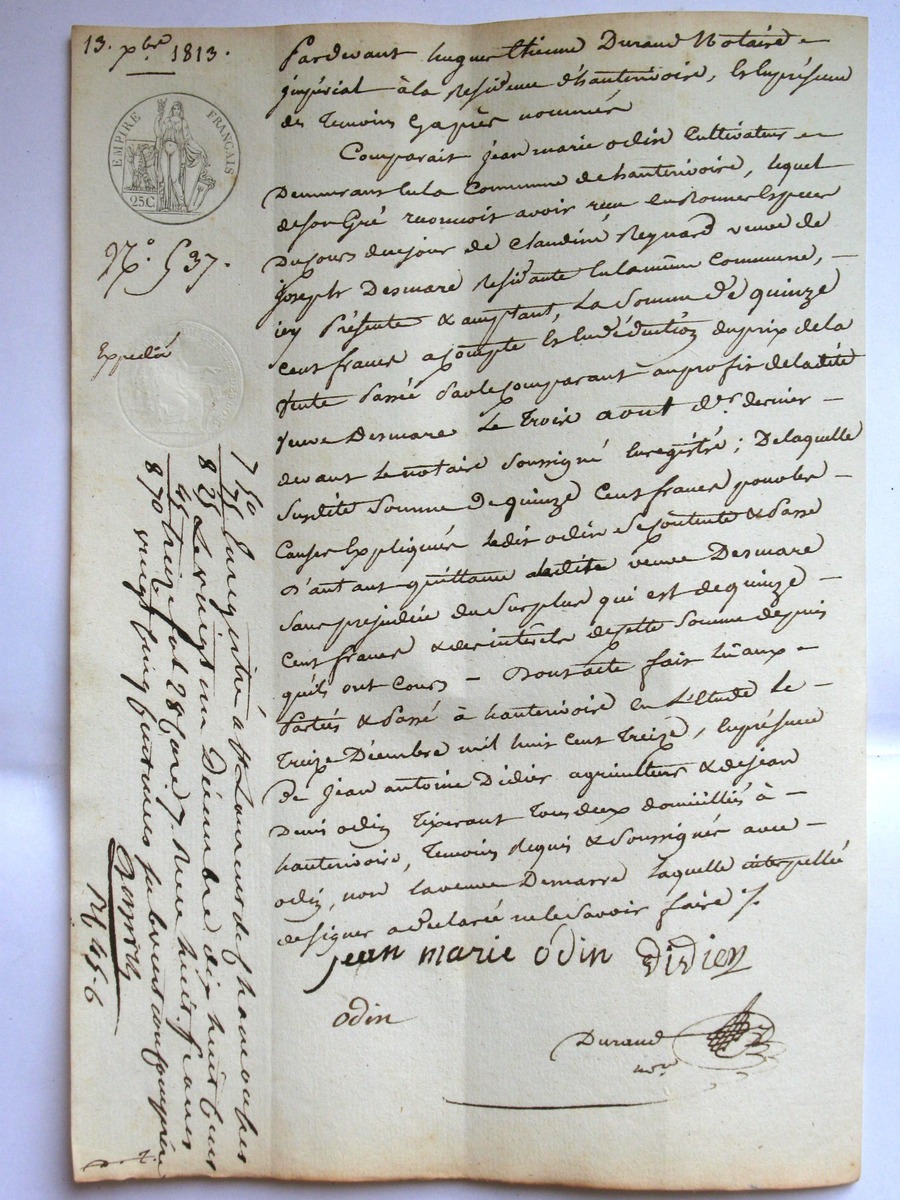 13. xbre 1813.
EMPIRE FRANÇAIS
25C
N.° 537.
Expedié
Pardevant hugues Etienne Durand Notaire
impérial à la Residence d'hauterivoire, & en présence
des Temoins cy après nommés
Comparait jean marie odin Cultivateur
Demeurant en la Commune de hauterivoire, lequel
de son Gré reconnoit avoir reçu en Bonnes Especes
Du jours de Claudine Reynard veuve de
joseph Desmare residante en la même Commune,
icy Présente & acceptant, La Somme De quinze
Cent francs a Compte & en déduction du prix de la
Vente Passée Par le Comparant au profit de la dite
veuve Desmare Le Trois aout dr. dernier
devant Le notaire Soussigné Enregistré ; De laquelle
Susdite Somme De quinze Cent francs pour les
Causes Expliquées ledit odin Se Contente & Passe
D'autant quittance a ladite veuve Desmare
Sans prejudice du Surplus qui est de quinze
Cent francs & des intérêts de cette Somme depuis
qu'ils ont Cours — Dont acte fait Lû aux
Parties & Passé à hauterivoire en L'Etude Le
Treize Décembre mil huit Cent Treize, en présence
De Jean antoine Didier agriculteur & de jean
Denis odin Tixerant Tous deux domiciliés à
hauterivoire, Temoins requis & Soussignés avec
odin, non la veuve Demarre Laquelle interpellée
de signer a déclarée ne le Savoir faire
jean marie odin Didier
odin
Durand
nore
7 50 Enregistré à St Laurent de chamousset
75
8 25 Le vingt un Décembre dix huit cent
45 treize fol 28 Case 7. Reçu huit francs
8 70 vingt cinq centimes subvention comprise